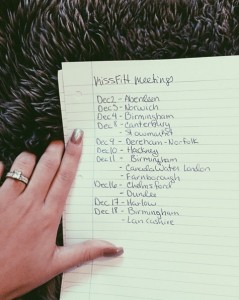 KissFitt Meetings
Dec2 - Aberdeen
Dec3 - Norwich
Dec4 - Birmingham
Dec8 - Canterbury
- Stowmarket
Dec9 - Dereham-Norfolk
Dec10 - Hackney
Dec11 - Birmingham
- Canada Water London
- Farnborough
Dec16 - Chelmsford
- Dundee
Dec17 - Harlow
Dec18 - Birmingham
- Lancashire